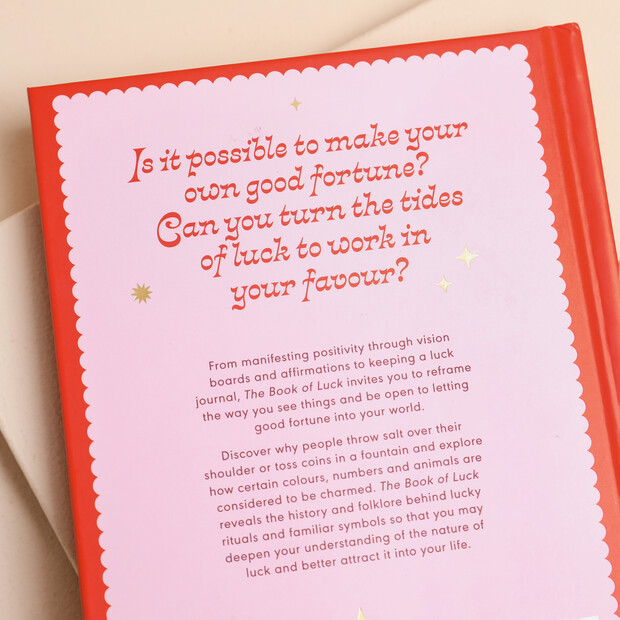 Is it possible to make your
own good fortune?
Can you turn the tides
of luck to work in
your favour?
From manifesting positivity through vision
boards and affirmations to keeping a luck
journal, The Book of Luck invites you to reframe
the way you see things and be open to letting
good fortune into your world.
Discover why people throw salt over their
shoulder or toss coins in a fountain and explore
how certain colours, numbers and animals are
considered to be charmed. The Book of Luck
reveals the history and folklore behind lucky
rituals and familiar symbols so that you may
deepen your understanding of the nature of
luck and better attract it into your life.